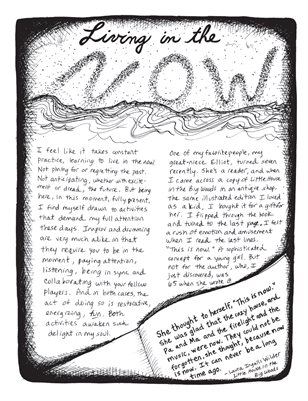 Living in the
NOW
I feel like it takes constant
practice, learning to live in the now.
Not pining for or regretting the past.
Not anticipating, whether with excite-
ment or dread, the future. But being
here, in this moment, fully present.
I find myself drawn to activities
that demand my full attention
these days. Improv and drumming
are very much alike in that
they require you to be in the
moment, paying attention,
listening, being in sync and
collaborating with your fellow
players. And in both cases, the
act of doing so is restorative,
energizing, fun. Both
activities awaken such
delight in my soul.
One of my favorite people, my
great-niece Elliot, turned seven
recently. She's a reader, and when
I came across a copy of Little House
in the Big Woods in an antique shop,
the same illustrated edition I loved
as a kid, I bought it for a gift for
her. I flipped through the book
and turned to the last page. I felt
a rush of emotion and amazement
when I read the last lines.
"This is now." A sophisticated
concept for a young girl. But
not for the author, who, I
just discovered, was
65 when she wrote it.
She thought to herself, "This is now."
She was glad that the cozy house, and
Pa and Ma and the firelight and the
music, were now. They could not be
forgotten, she thought, because now
is now. It can never be a long
time ago.
- Laura Ingalls Wilder
Little House in the
Big Woods